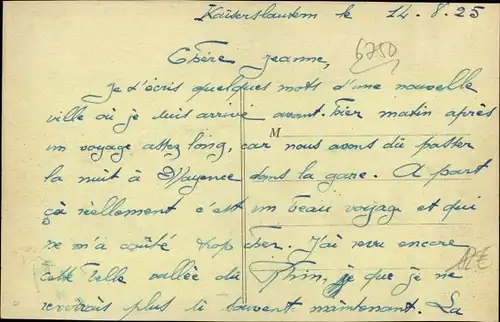 Kaiserslautern le 14.8.25
6750
Chère Jeanne,
Je t'écris quelques mots d'une nouvelle
ville où je suis arrivé avant-hier matin après
M
un voyage assez long, car nous avons dû passer
la nuit à Mayence dans la gare. A part
çà réellement c'est un beau voyage et qui
ne m'a coûté trop cher. J'ai revu encore
cette belle vallée du Rhin, je que je ne
reverrais plus si souvent maintenant. La